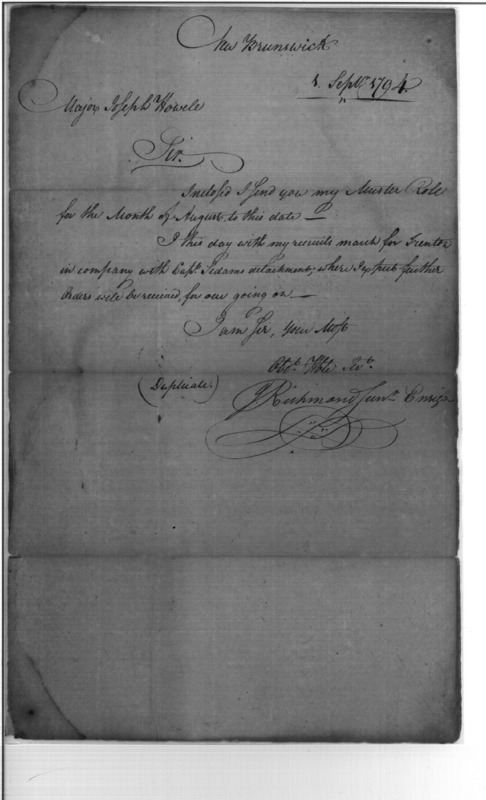 New Brunswick
1. Sept.r 1794
Major Joseph Howele
Sir.
Inclosed I send you my Muster Role
for the Month of August, to this date —
I this day with my recruits march for Trenton
in company with Capt. Pedans detachment, where I expect further
Orders will be received, for our going on —
I am Sir, your Most
Obd.t Hble Sv.t
(Duplicate)
Richmond Jun.r Ensign